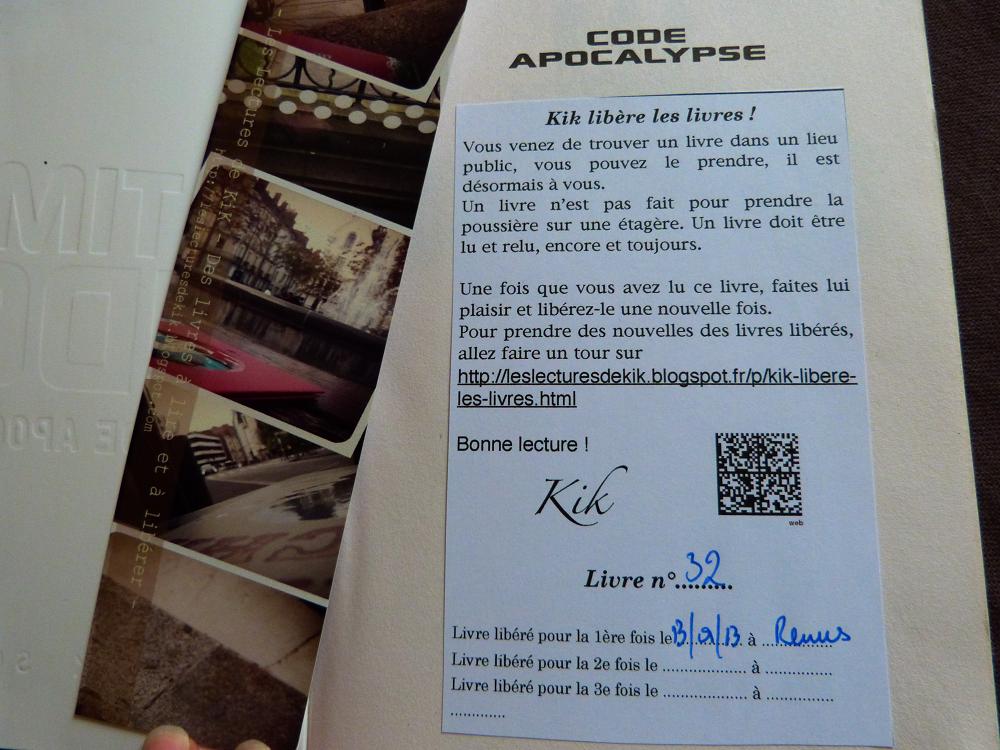 CODE
APOCALYPSE
Kik libère les livres !
Vous venez de trouver un livre dans un lieu
public, vous pouvez le prendre, il est
désormais à vous.
Un livre n'est pas fait pour prendre la
poussière sur une étagère. Un livre doit être
lu et relu, encore et toujours.
Une fois que vous avez lu ce livre, faites lui
plaisir et libérez-le une nouvelle fois.
Pour prendre des nouvelles des livres libérés,
allez faire un tour sur
http://leslecturesdekik.blogspot.fr/p/kik-libere-
les-livres.html
Bonne lecture !
Kik
web
Livre n°32
Livre libéré pour la 1ère fois le 13/ /13 à
Livre libéré pour la 2e fois le .................. à ..............
Livre libéré pour la 3e fois le .................. à ..............
.............
- Les Lectures de Kik - Des livres à lire et à libérer -
http://leslecturesdekik.blogspot.com
TIM
DO
E APOC